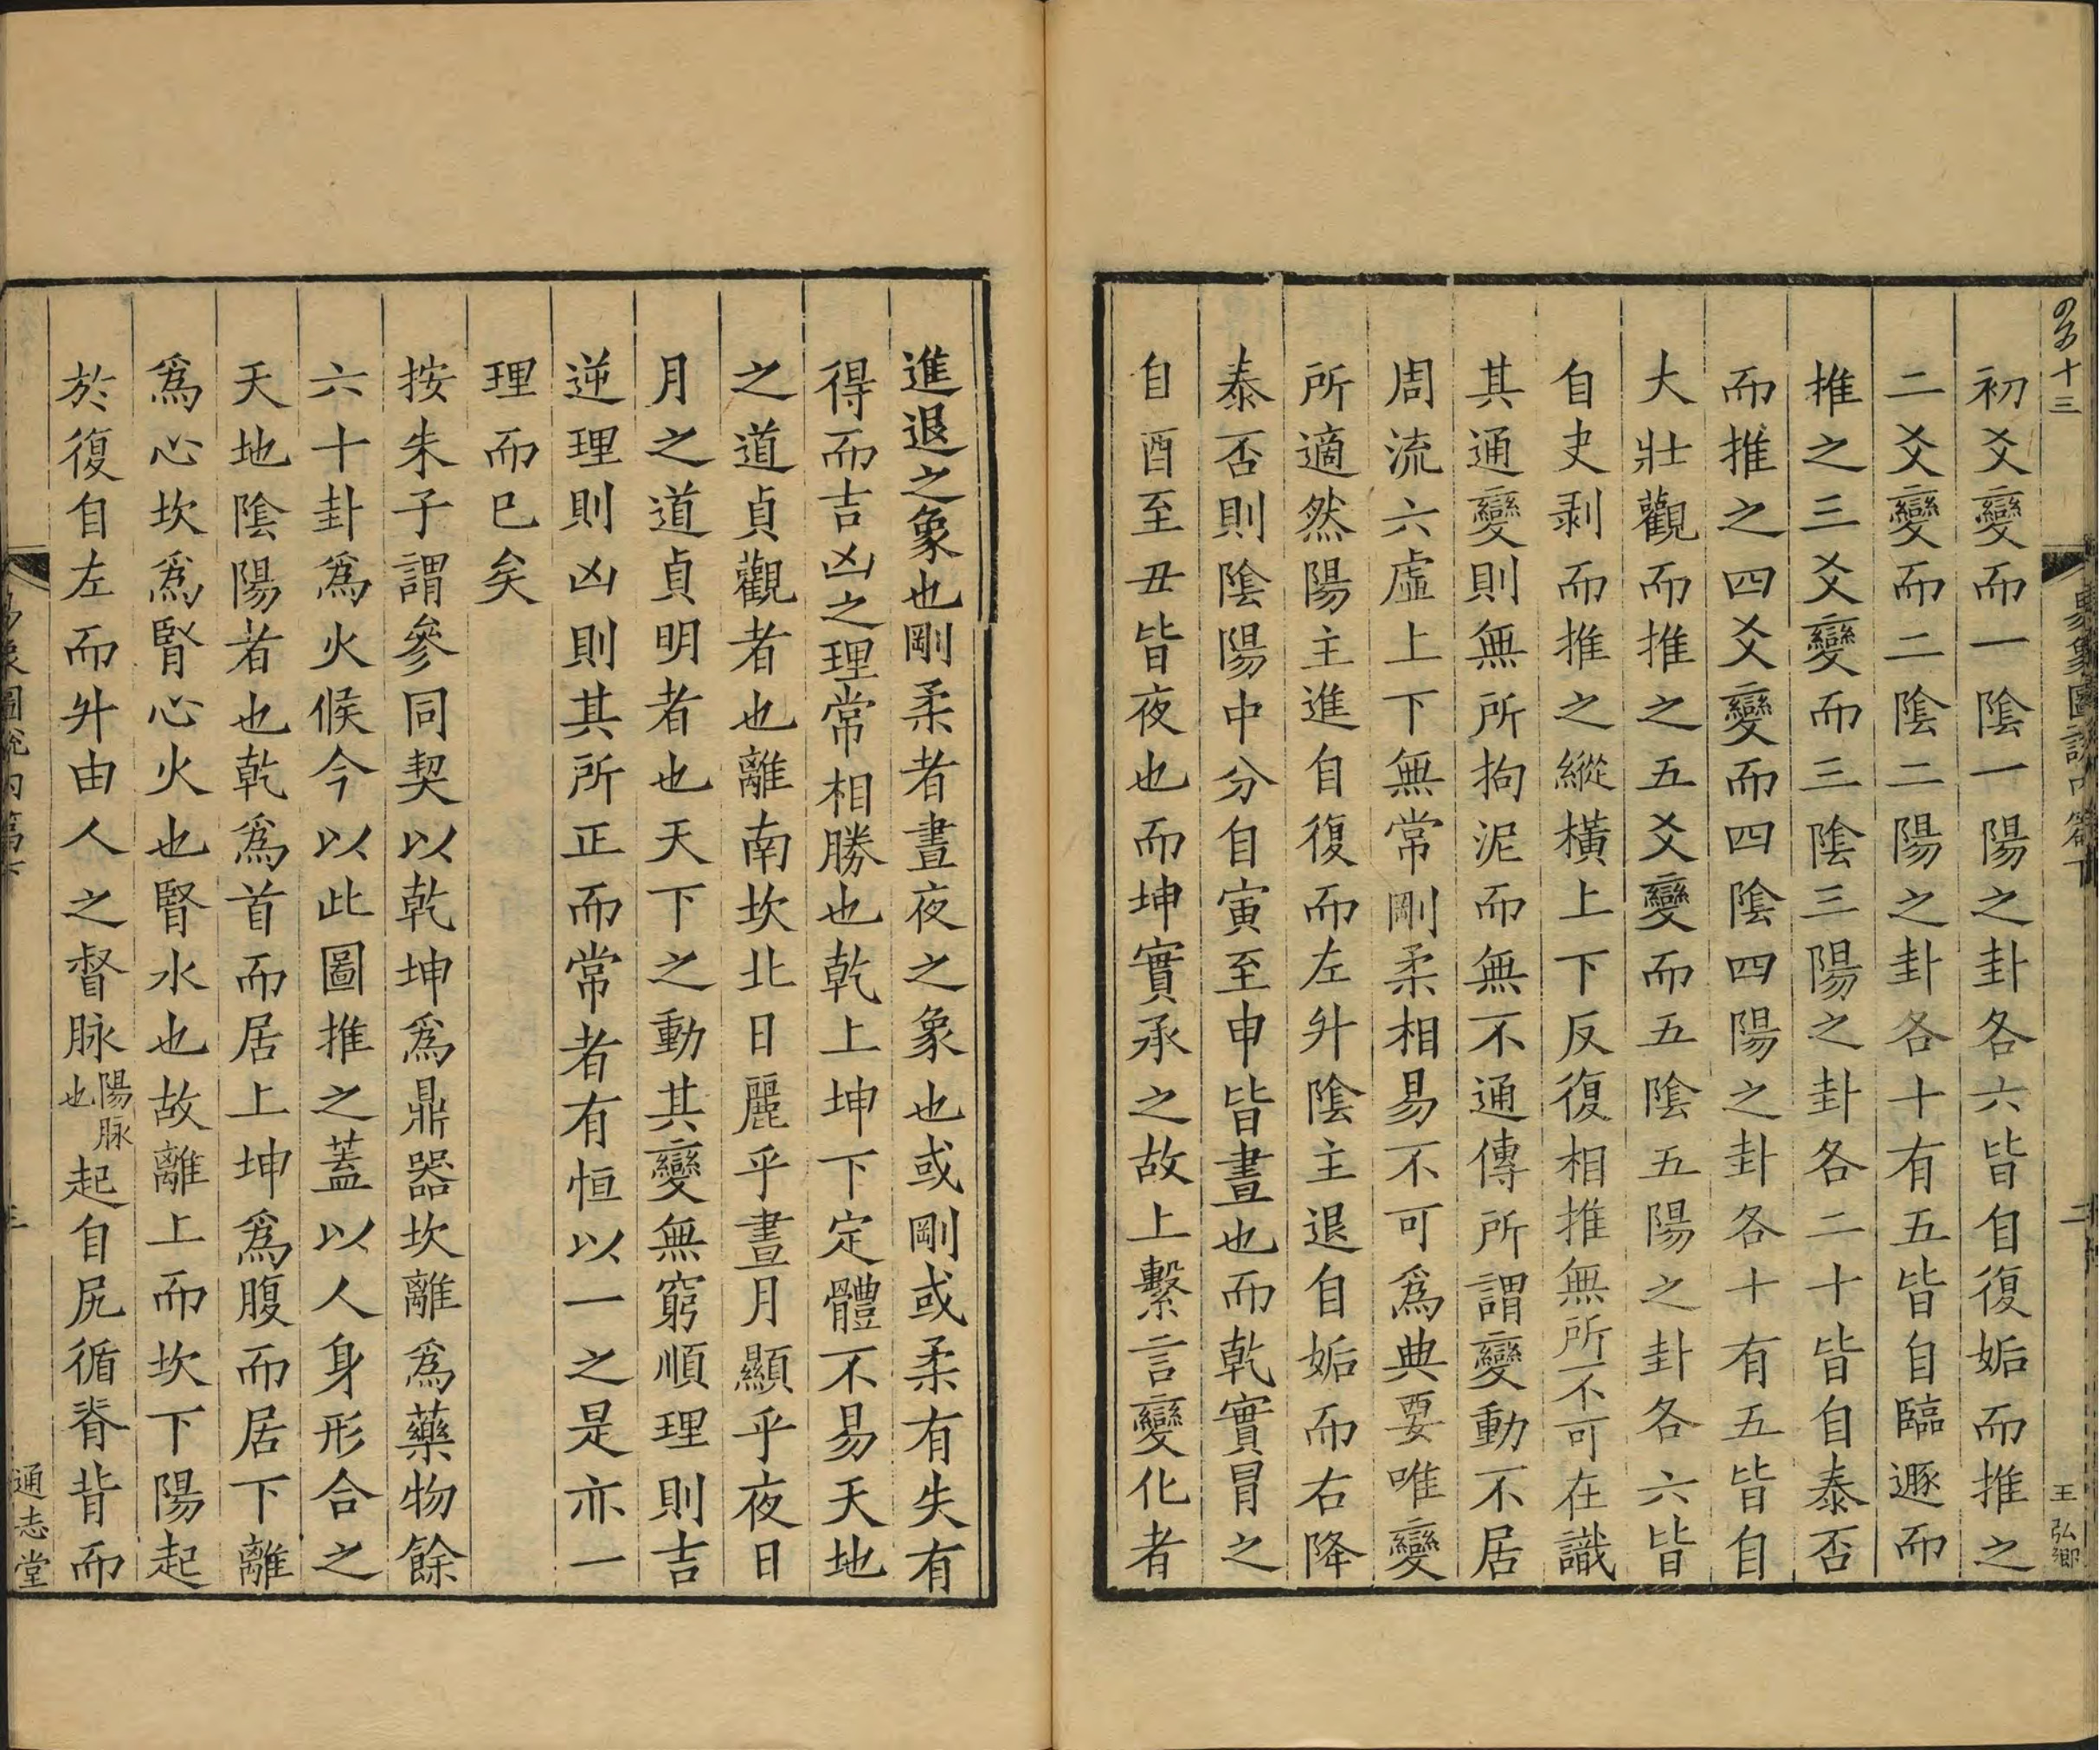 初爻變而一陰一陽之卦各六皆自復姤而推之
二爻變而二陰二陽之卦各十有五皆自臨遯而
推之三爻變而三陰三陽之卦各二十皆自泰否
而推之四爻變而四陰四陽之卦各十有五皆自
大壯觀而推之五爻變而五陰五陽之卦各六皆
自夬剥而推之縱橫上下反復相推無所不可在識
其通變則無所拘泥而無不通傳所謂變動不居
周流六虛上下無常剛柔相易不可爲典要唯變
所適然陽主進自復而左升陰主退自姤而右降
泰否則陰陽中分自寅至申皆晝也而乾實冒之
自酉至丑皆夜也而坤實承之故上繫言變化者
進退之象也剛柔者晝夜之象也或剛或柔有失有
得而吉凶之理常相勝也乾上坤下定體不易天地
之道貞觀者也離南坎北日麗乎晝月顯乎夜日
月之道貞明者也天下之動其變無窮順理則吉
逆理則凶則其所正而常者有恒以一之是亦一
理而已矣
按朱子謂參同契以乾坤爲鼎器坎離爲藥物餘
六十卦爲火候今以此圖推之蓋以人身形合之
天地陰陽者也乾爲首而居上坤爲腹而居下離
爲心坎爲腎心火也腎水也故離上而坎下陽起
於復自左而升由人之督脉陽脉也起自尻循脊背而
通志堂
王弘卿